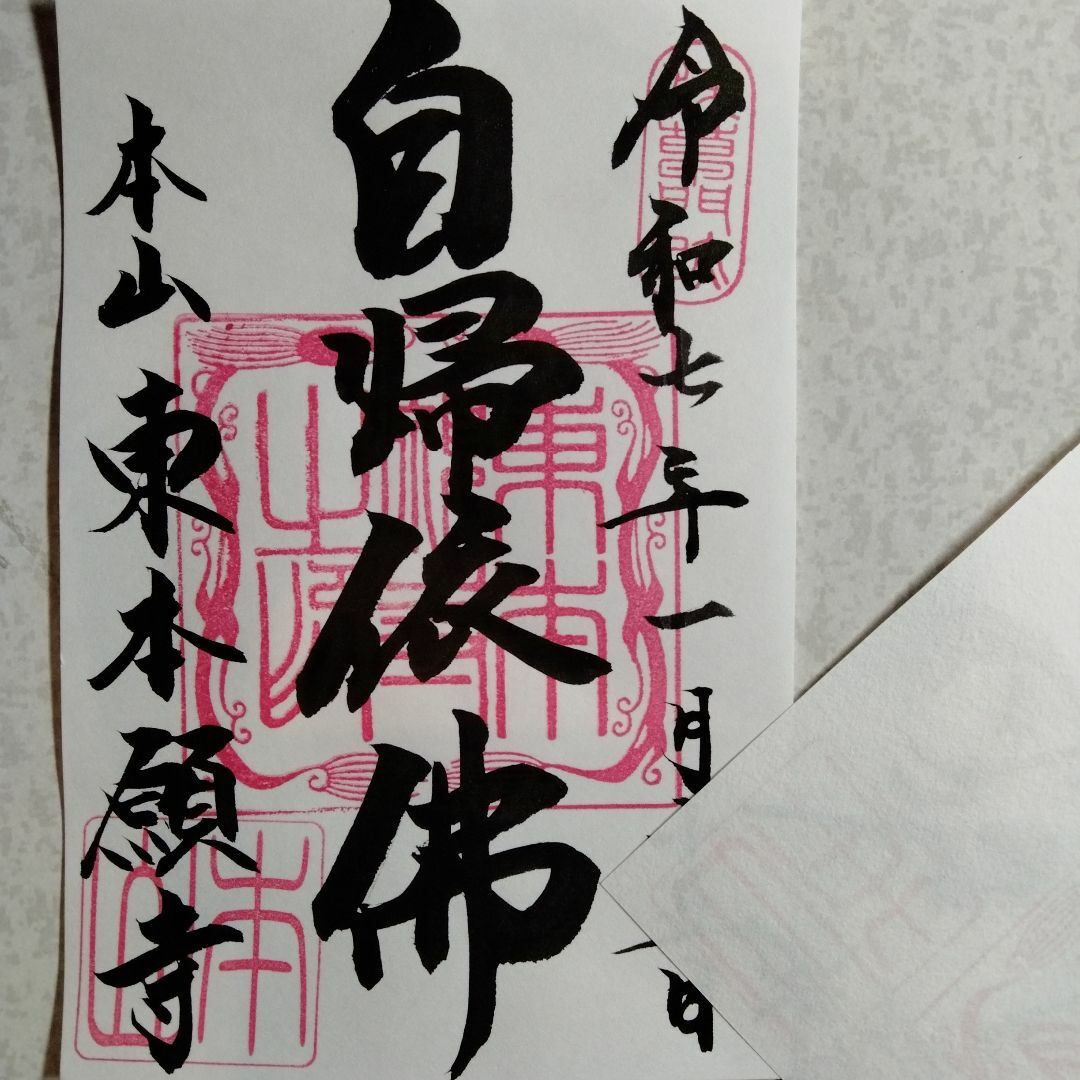 令和七年一月 日
自帰依佛
本山東本願寺